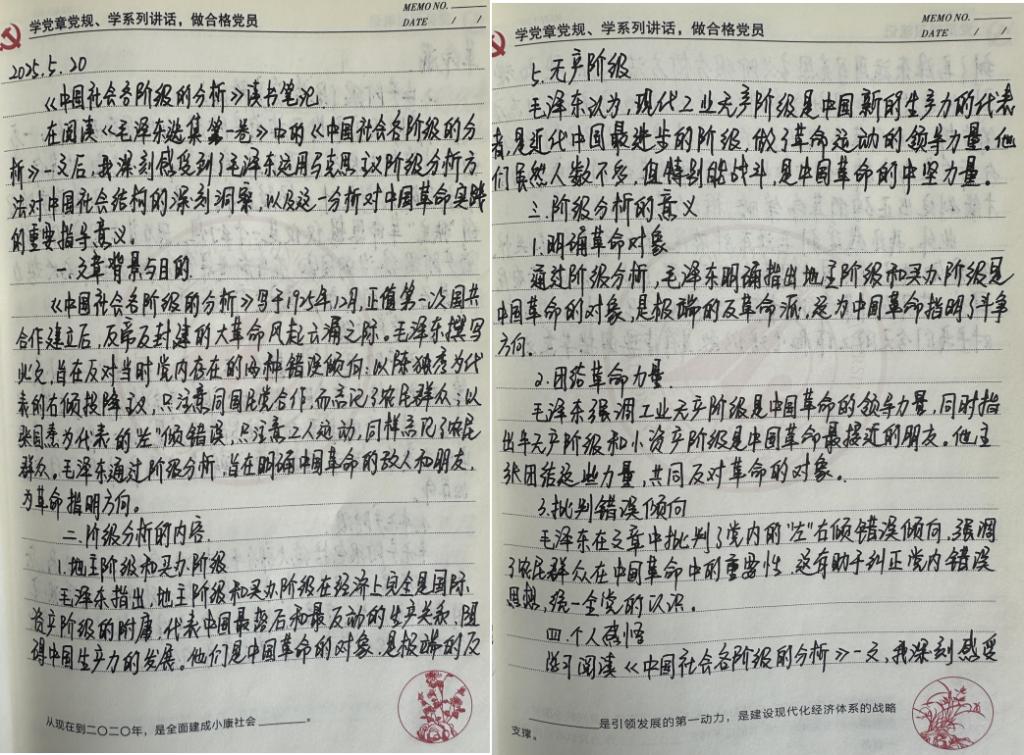 学党章党规、学系列讲话，做合格党员
MEMO NO.
DATE / /
2025.5.20
《中国社会各阶级的分析》读书笔记
在阅读《毛泽东选集第一卷》中的《中国社会各阶级的分
析》一文后，我深刻感受到了毛泽东运用马克思主义阶级分析方
法对中国社会结构的深刻洞察，以及这一分析对中国革命实践
的重要指导意义。
一.文章背景与目的
《中国社会各阶级的分析》写于1925年12月，正值第一次国共
合作建立后，反帝反封建的大革命风起云涌之际。毛泽东撰写
此文，旨在反对当时党内存在的两种错误倾向：以陈独秀为代
表的右倾投降主义，只注意同国民党合作，而忘记了农民群众；以
张国焘为代表的"左"倾错误，只注意工人运动，同样忘记了农民
群众。毛泽东通过阶级分析，旨在明确中国革命的敌人和朋友，
为革命指明方向。
二.阶级分析的内容
1.地主阶级和买办阶级
毛泽东指出，地主阶级和买办阶级在经济上完全是国际
资产阶级的附庸，代表中国最落后和最反动的生产关系，阻
碍中国生产力的发展。他们是中国革命的对象，是极端的反
从现在到二〇二〇年，是全面建成小康社会______。
学党章党规、学系列讲话，做合格党员
MEMO NO.
DATE / /
5.无产阶级
毛泽东认为，现代工业无产阶级是中国新的生产力的代表
者，是近代中国最进步的阶级，做了革命运动的领导力量。他
们虽然人数不多，但特别能战斗，是中国革命的中坚力量。
三.阶级分析的意义
1.明确革命对象
通过阶级分析，毛泽东明确指出地主阶级和买办阶级是
中国革命的对象，是极端的反革命派，这为中国革命指明了斗争
方向.
2.团结革命力量
毛泽东强调工业无产阶级是中国革命的领导力量，同时指
出半无产阶级和小资产阶级是中国革命最接近的朋友。他主
张团结这些力量，共同反对革命的对象。
3.批判错误倾向
毛泽东在文章中批判了党内的"左"右倾错误倾向，强调
了农民群众在中国革命中的重要性，这有助于纠正党内错误
思想，统一全党的认识。
四.个人感悟
学习阅读《中国社会各阶级的分析》一文，我深刻感受
______是引领发展的第一动力，是建设现代化经济体系的战略
支撑。